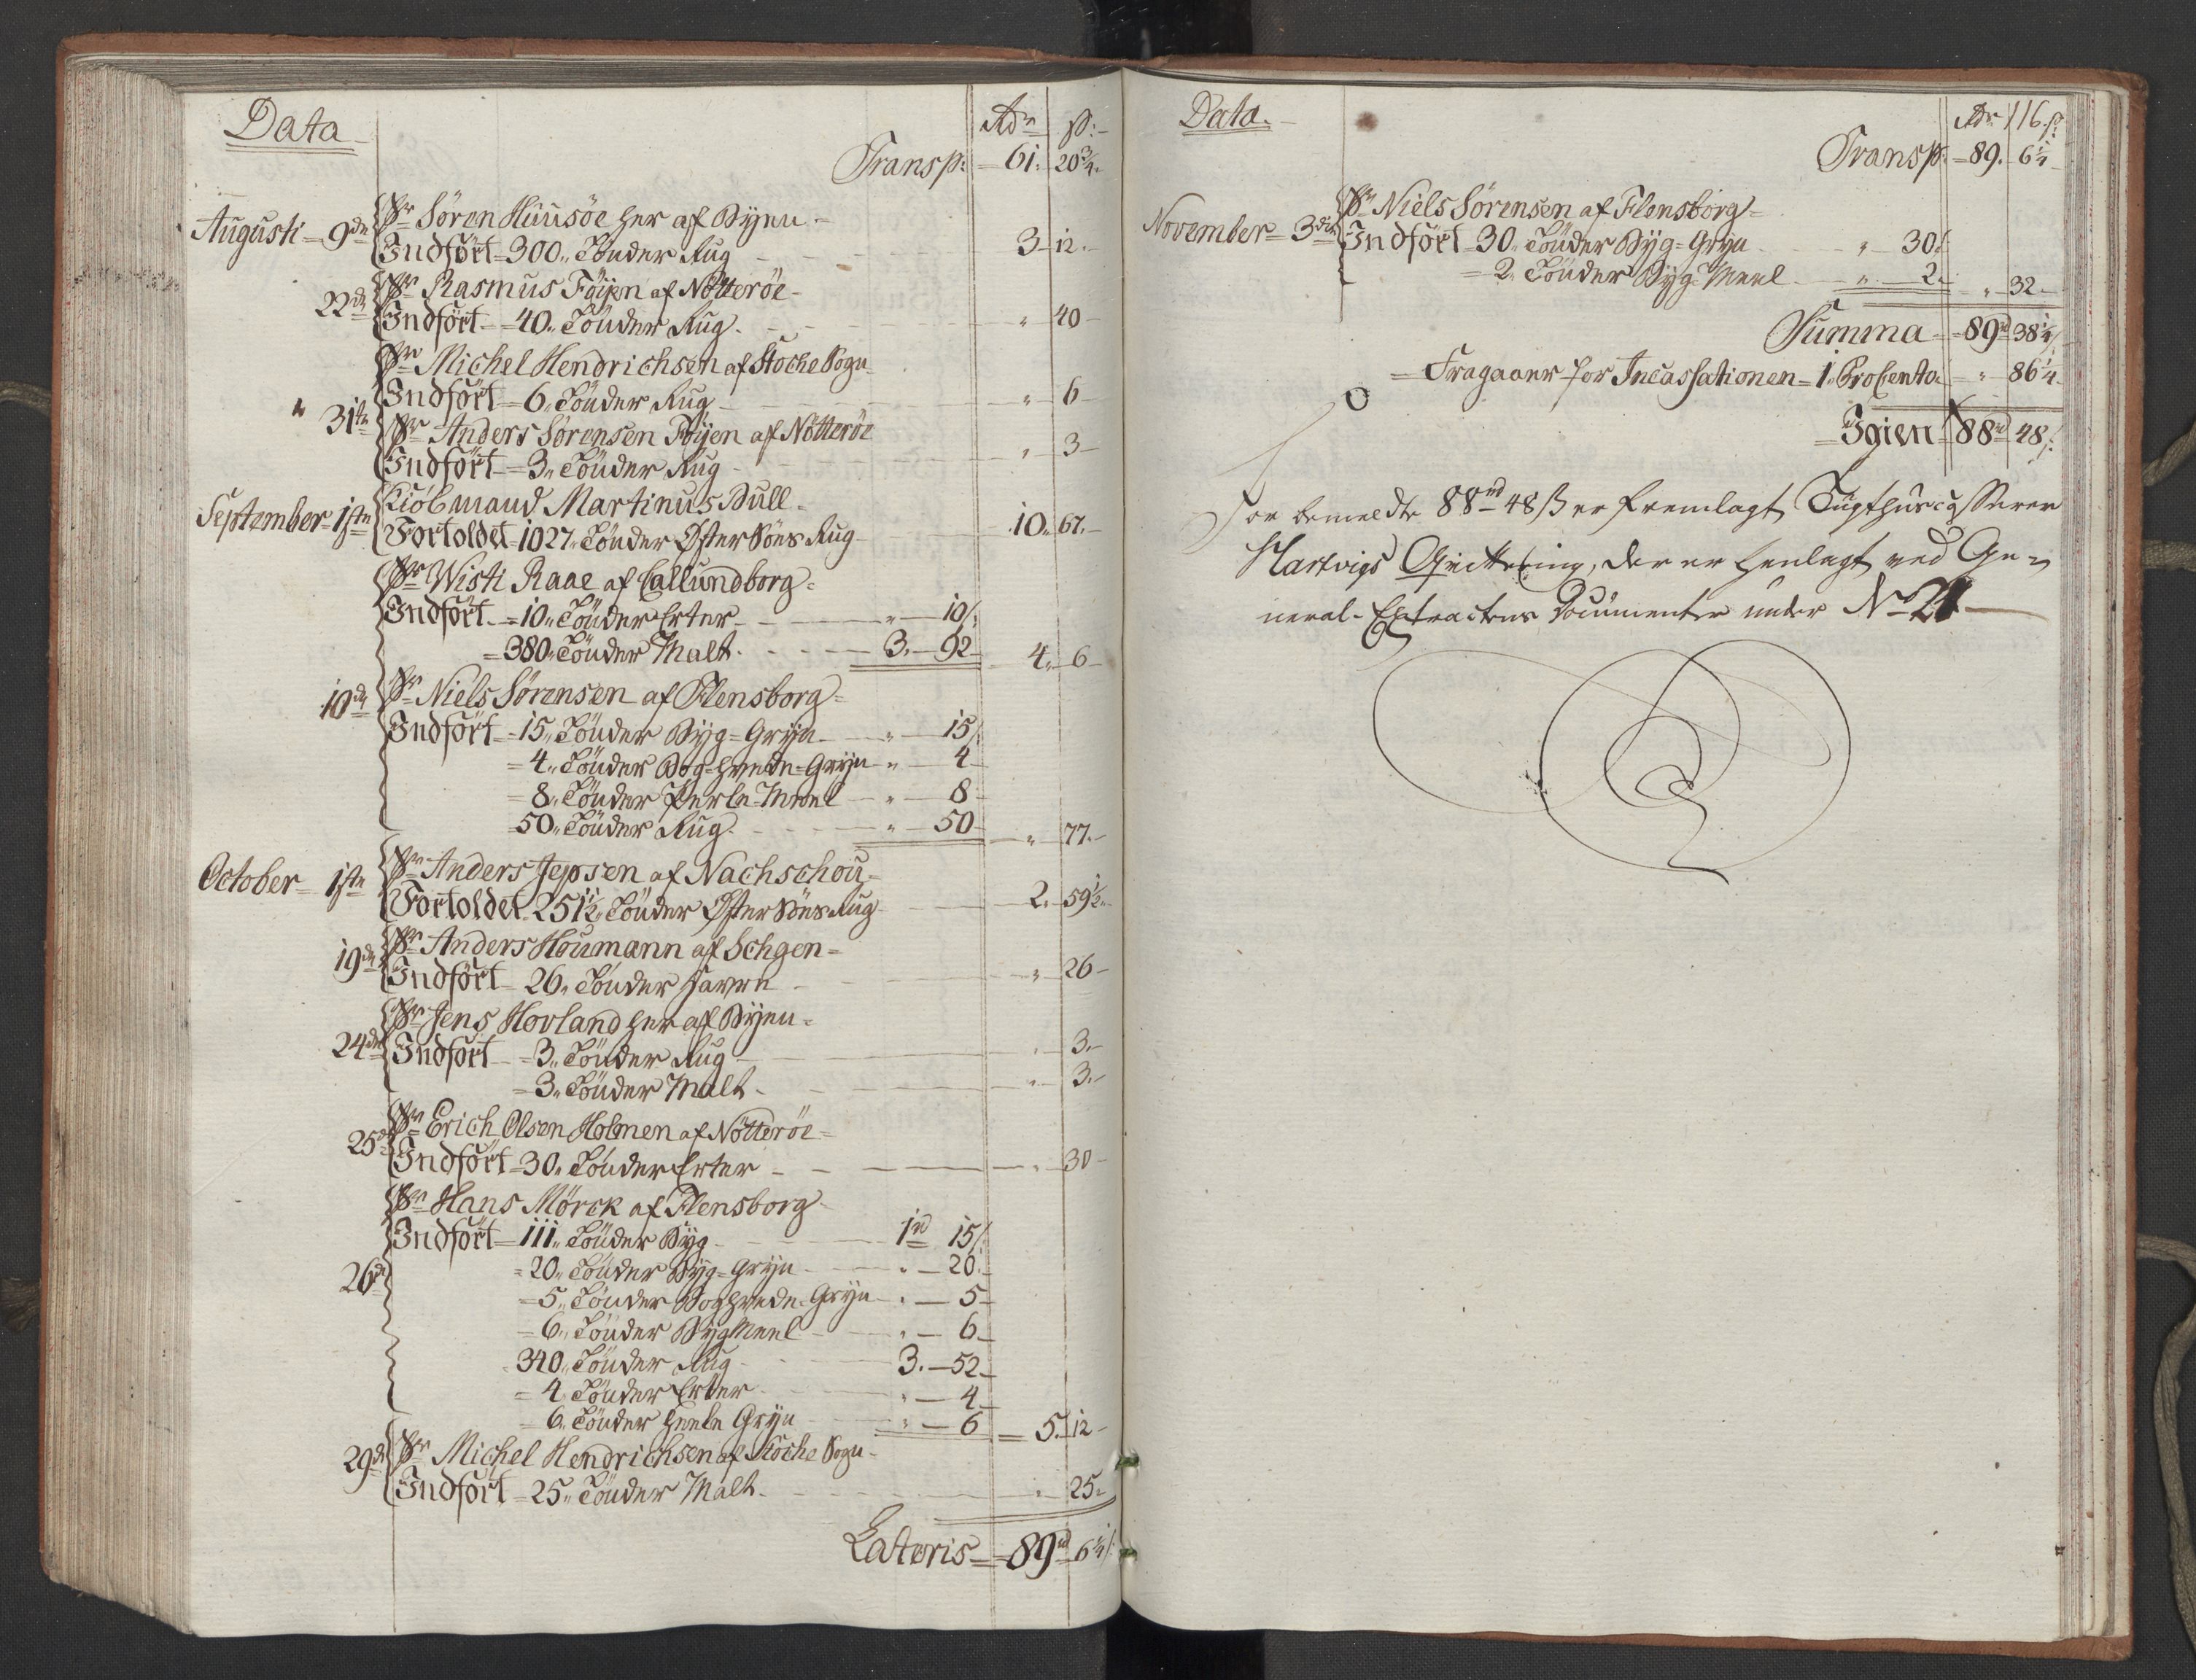 Data
Rdr ß:
Transp: 61. 20 3/4.
Augusti 9de Sr Søren Huusøe her af Byen
Indført 300. Tönder Rug 3 12.
22de Sr Rasmus Föyen af Nötteröe
Indført 40. Tönder Rug. " 40
Sr Michel Hendrichsen af Stoche Sogn
Indført 6. Tönder Rug " 6
" 31te Sr Anders Sørensen Föyen af Nötteröe
Indført 3. Tönder Rug " 3
September 1ste Kiöbmand Martinus Bull
Fortoldet 1027. Tönder Øster Söes Rug 10. 67.
Sr Wisti Raae af Callundborg
Indført 10. Tönder Erter " 10/:
380. Tönder Malt. 3. 92 4. 6
10de Sr Niels Sørensen af Flensborg
Indført 15. Tönder Byg-Gryn " 15/:
4. Tönder Bog-hvede-Gryn " 4
8. Tönder Perle-Meel " 8
50. Tönder Rug. " 50 " 77.
October 1ste Sr Anders Jepsen af Nachschou
Fortoldet 251 1/2. Tönder Øster Söes Rug 2. 59 1/2.
19de Sr Anders Houmann af Schgen
Indført 26. Tönder Havre " 26
Sr Jens Hovland her af Byen
24de Indført 3. Tönder Rug " 3.
3. Tönder Malt. " 3.
25de Sr Erich Olsen Holmen af Nötteröe
Indført 30. Tönder Erter " 30
Sr Hans Mørck af Flensborg
Indført 111. Tönder Byg 1rd 15/:
26de 20. Tönder Byg-Gryn " 20.
5. Tönder Boghvede-Gryn " 5
6. Tönder Byg Meel " 6
340. Tönder Rug 3. 52
4. Tönder Erter " 4
6. Tönder heele Gryn " 6 5. 12
29de Sr Michel Hendrichsen af Stoche Sogn
Indført 25. Tönder Malt. " 25.
Lateris 89rd 6 1/4/:
Data.
Rdr 116. ß
Transp: 89. 6 1/4
November 3die Sr Niels Sørensen af Flensborg
Indført 30. Tönder Byg-Gryn " 30/:
2. Tönder Byg-Meel " 2. " 32
Summa 89rd 38 1/4/:
Fragaaer for Incassationen 1. Procento " 86 1/4
Igien 88rd 48/:
For bemeldte 88rd 48 ß er fremlagt Tugthuscasserer
Hartvigs Qvittering, der er henlagt ved Ge-
neral-Extractens Documenter under No 21